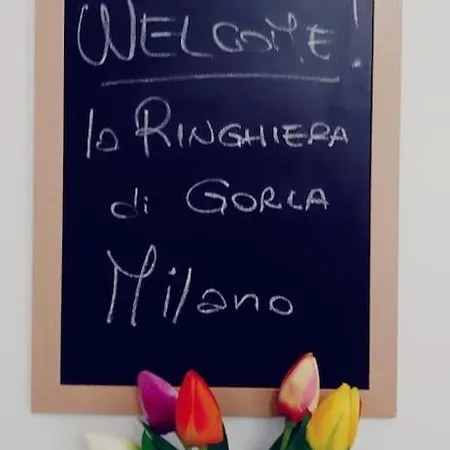 WELCOME!
la RINGHIERA
di GORLA
Milano